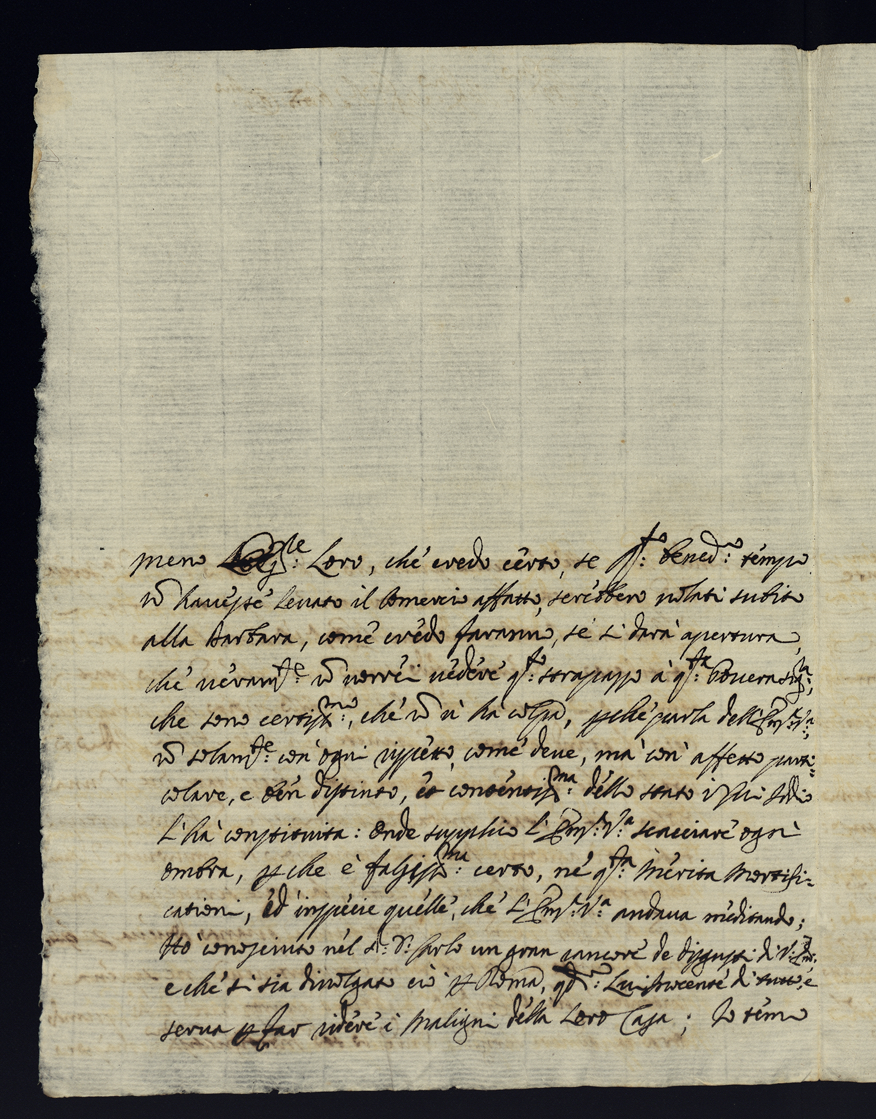 meno Loro, che credo certo, se q.to bened.o tempo
nõ havesse levato il Comercio affatto, serebbero volati subito
alla barbara, come credo faranno, se si darà apertura,
che veram.te nõ vorrei vedere q.to strapazzo à q.ta povera sig.ra,
che sono certiss.mo, che nõ vi hà colpa, pche parla dell'Em.V.a
nõ solam.te con ogni rispetto, come deve, mà con affetto parti=
colare, e ben distinto, et contentiss.ma dello stato i
L'hà constituita: Onde supplico l'Em.V.a scacciare ogni
ombra, pche è falsiss.ma certo, nè q.ta merita mortifi=
cationi, ed in specie quelle, che l'Em.V.a andava meditando;
Hò conosciuto nel S.r Carlo un gran rancore de disgusti di
e che si sia divolgato ciò p Roma, Innocente di tutto, e
serva p far ridere i maligni della Loro Casa; Io temo